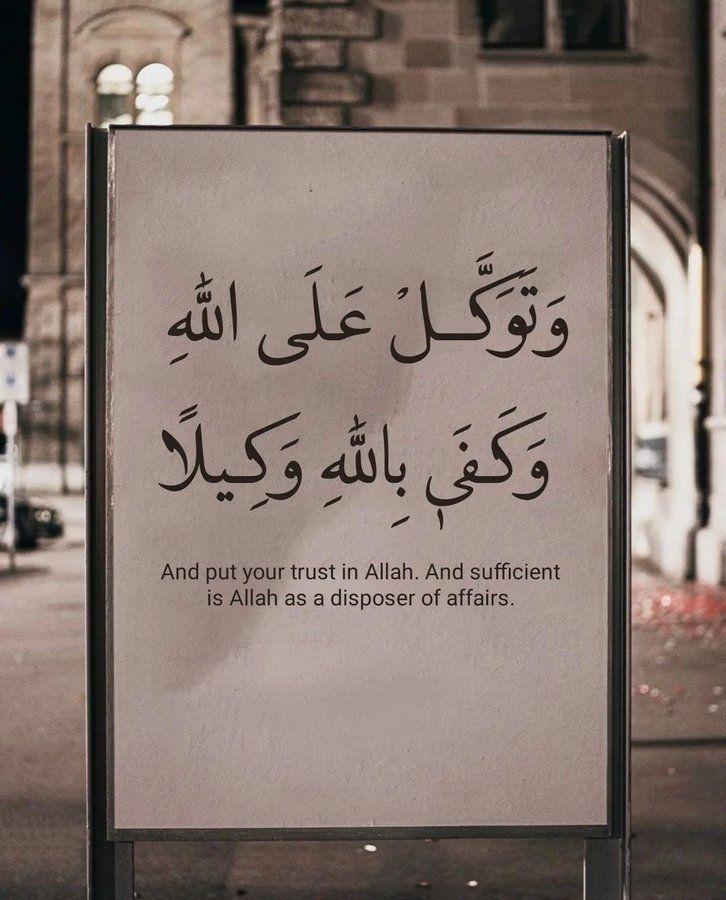 وَتَوَكَّلْ عَلَى اللّٰهِ
وَكَفَىٰ بِاللّٰهِ وَكِيلًا
And put your trust in Allah. And sufficient
is Allah as a disposer of affairs.